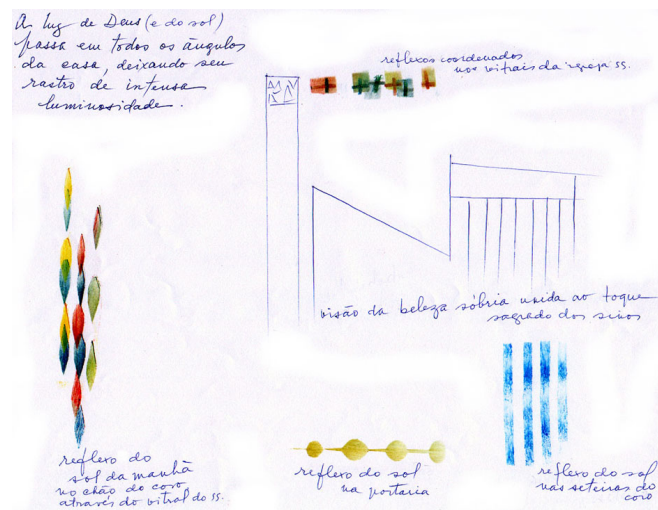 A luz de Deus (e do sol)
passa em todos os ângulos
da casa, deixando seu
rastro de intensa
luminosidade.
reflexos coordenados
nos vitrais da igreja ss.
visão da beleza sóbria unida ao toque
sagrado dos sinos
reflexo do
sol da manhã
no chão do coro
através do vitral do ss.
reflexo do sol
na portaria
reflexo do sol
nas seteiras do
coro